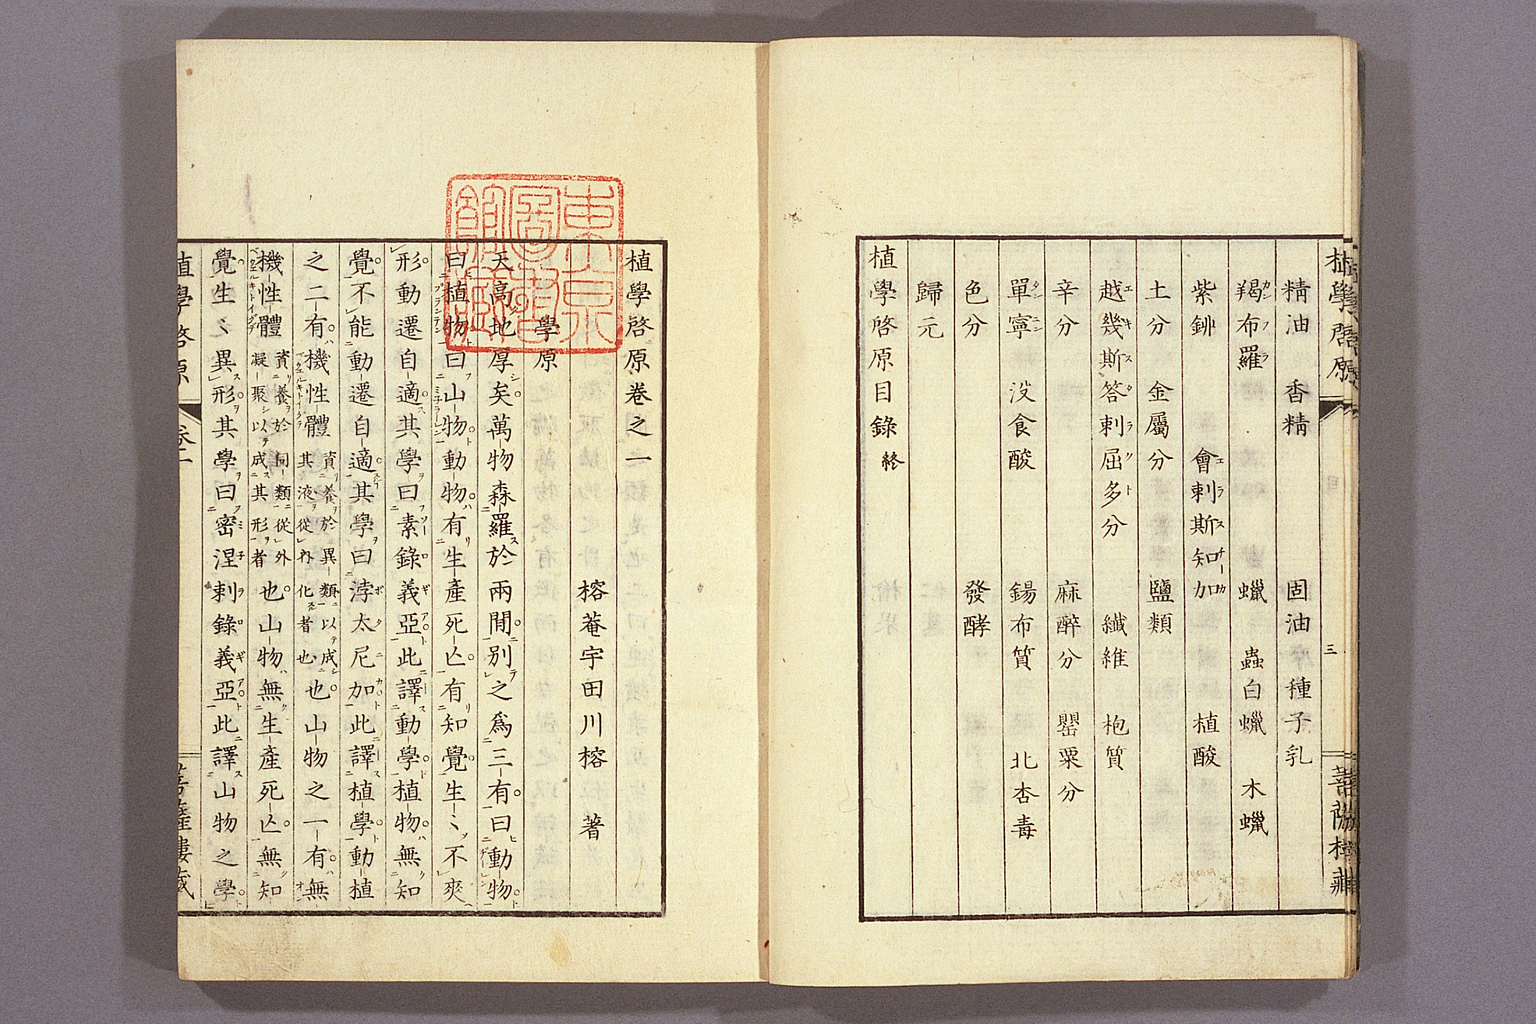 精油　香精　固油　種子乳
羯布羅　蠟　蟲白蠟　木蠟
紫鉚　會剌斯知加　植酸
土分　金屬分　鹽類
越幾斯答剌屈多分　纖維　枹質
辛分　麻醉分　罌粟分
單寧　沒食酸　鍚布質　北杏毒
色分　發酵
歸元
植學啓原目錄 終
三
植學啓原卷之一
榕菴宇田川榕　著
學原
天高地厚矣萬物森羅於兩間別之爲三有曰動物
曰植物曰山物動物有生產死亡有知覺生〻不爽
形動遷自適其學曰素錄義亞此譯動學植物無知
覺不能動遷自適其學曰浡太尼加此譯植學動植
之二有機性體資養於異類以成其液從内化者也也山物之一有無
機性體資養於同類從外凝聚以成其形者也山物無生產死亡無知
覺生〻異形其學曰密涅剌錄義亞此譯山物之學
植學啓原
卷一
菩薩樓藏
東京圖書館藏